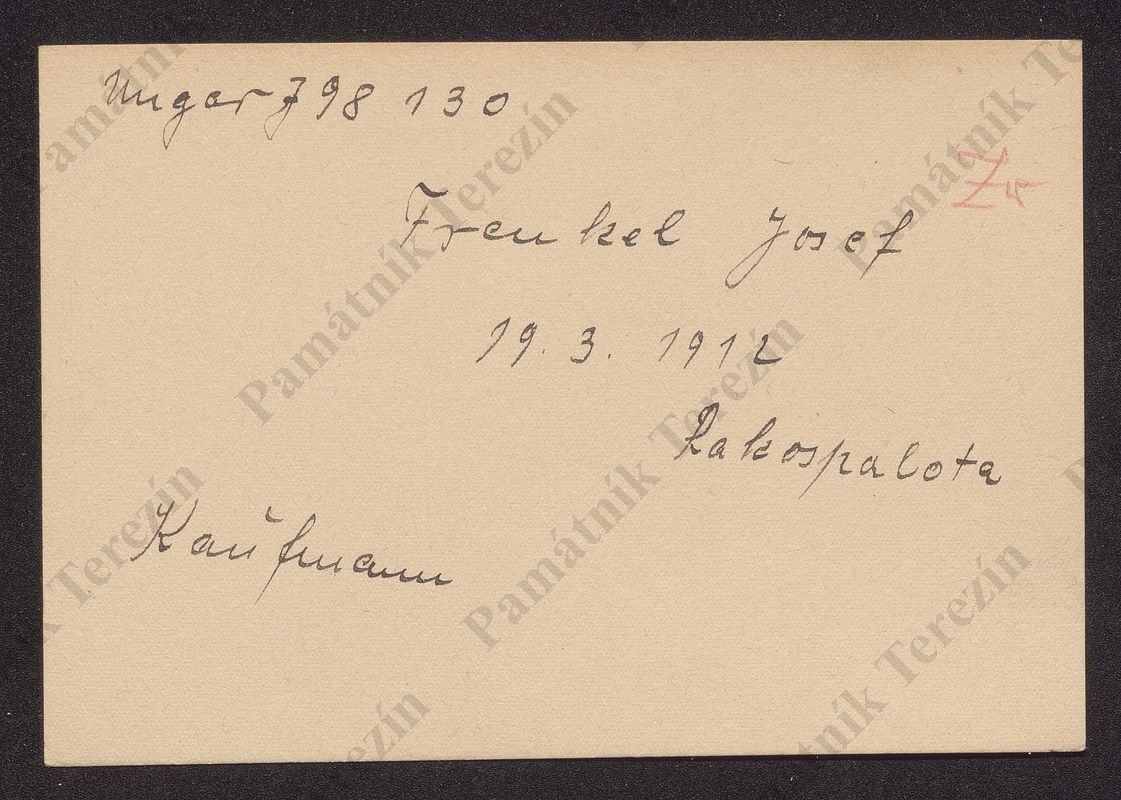 Ungar J 98 130
Frenkel Josef
19. 3. 1912
Rakospalota
Kaufmann
Památník Terezín